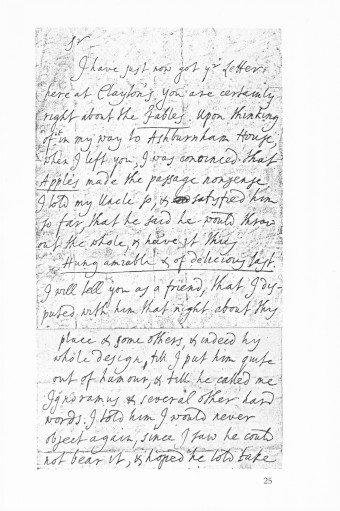 Sr
I have just now got yr Letters
here at Claytons, you are certainly
right about the Fables. Upon thinking
of it in my way to Ashburnham House,
when I left you, I was convinced that
Apples made the passage nonsense
I told my Uncle so, & satisfied him
so far, that he said he would throw
out the whole, & have it thus
Hung amiable & of delicious tast.
I will tell you as a friend, that I dis-
puted with him that night about this
place & some others, & indeed his
whole design, till I put him quite
out of humour, & till he called me
Ignoramus & several other hard
words. I told him I would never
object again, since I saw he could
not bear it, & hoped he would take
25